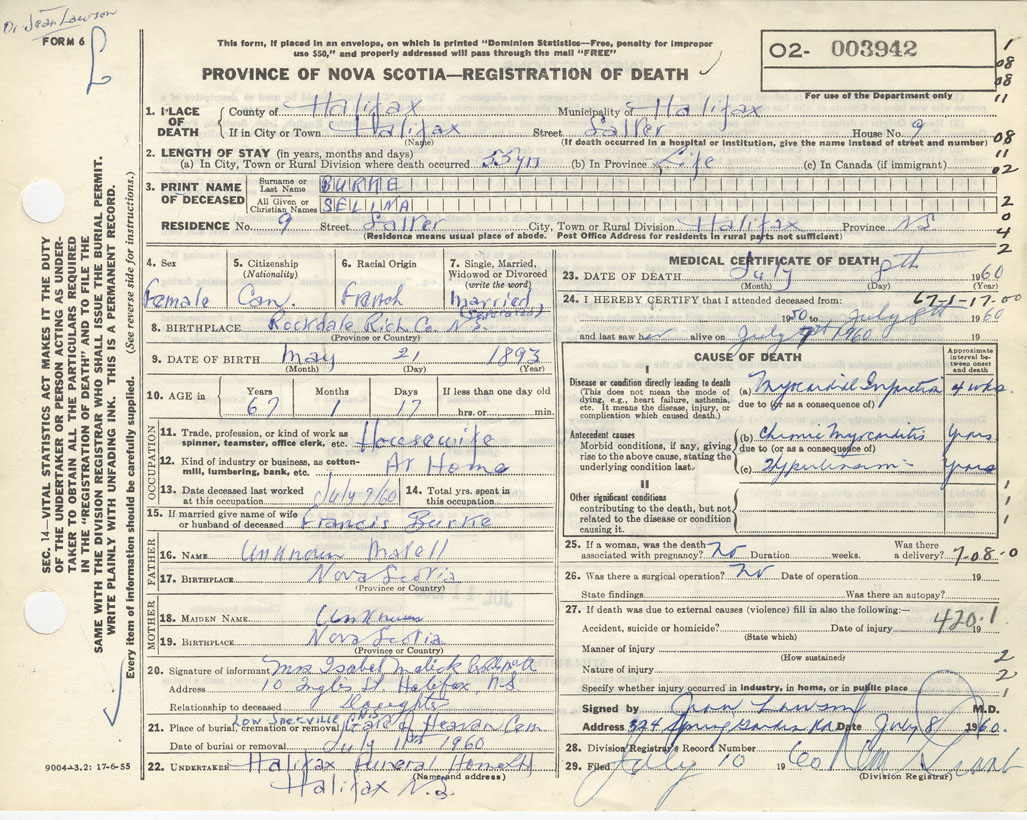 Dr Jean Lawson
FORM 6
This form, if placed in an envelope, on which is printed "Dominion Statistics—Free, penalty for improper
use $50," and properly addressed will pass through the mail "FREE"
PROVINCE OF NOVA SCOTIA—REGISTRATION OF DEATH
O2- 003942
For use of the Department only
1. PLACE OF DEATH County of Halifax Municipality of Halifax
If in City or Town Halifax Street Salter House No. 9
(Name) (If death occurred in a hospital or institution, give the name instead of street and number)
2. LENGTH OF STAY (in years, months and days)
(a) In City, Town or Rural Division where death occurred 55 yrs (b) In Province Life (c) In Canada (if immigrant)
3. PRINT NAME OF DECEASED
Surname or Last Name BURKE
All Given or Christian Names SELINA
RESIDENCE No. 9 Street Salter City, Town or Rural Division Halifax Province NS
(Residence means usual place of abode. Post Office Address for residents in rural parts not sufficient)
4. Sex Female
5. Citizenship (Nationality) Can.
6. Racial Origin French
7. Single, Married, Widowed or Divorced (write the word) Married (Separated)
8. BIRTHPLACE Rockdale Rich. Co. N.S.
(Province or Country)
9. DATE OF BIRTH May 21 1893
(Month) (Day) (Year)
10. AGE in Years 67 Months 1 Days 17 If less than one day old hrs. or min.
OCCUPATION
11. Trade, profession, or kind of work as spinner, teamster, office clerk, etc. Housewife
12. Kind of industry or business, as cotton-mill, lumbering, bank, etc. At Home
13. Date deceased last worked at this occupation July 7/60 14. Total yrs. spent in this occupation
15. If married give name of wife or husband of deceased Francis Burke
FATHER
16. NAME Unknown Martell
17. BIRTHPLACE Nova Scotia
(Province or Country)
MOTHER
18. MAIDEN NAME Unknown
19. BIRTHPLACE Nova Scotia
(Province or Country)
20. Signature of informant Mrs Isabel Malick
Address 10 Inglis St. Halifax N.S.
Relationship to deceased Daughter
21. Place of burial, cremation or removal Low Sackville N.S. Gate of Heaven Cem
Date of burial or removal July 11th 1960
22. UNDERTAKER Halifax Funeral Home Ltd
(Name and address)
Halifax N.S.
MEDICAL CERTIFICATE OF DEATH
23. DATE OF DEATH July 8th 1960
(Month) (Day) (Year)
67-1-17-00
24. I HEREBY CERTIFY that I attended deceased from:
1950 to July 8th 1960
and last saw her alive on July 7th 1960
CAUSE OF DEATH
Approximate interval between onset and death
I
Disease or condition directly leading to death
(This does not mean the mode of dying, e.g., heart failure, asthenia, etc. It means the disease, injury, or complication which caused death.)
(a) Myocardial Infarction 4 wks.
due to (or as a consequence of)
Antecedent causes
Morbid conditions, if any, giving rise to the above cause, stating the underlying condition last.
(b) Chronic Myocarditis Years
due to (or as a consequence of)
(c) Hypertension Years
II
Other significant conditions
contributing to the death, but not related to the disease or condition causing it.
25. If a woman, was the death associated with pregnancy? No Duration weeks. Was there a delivery?
7-08-0
26. Was there a surgical operation? No Date of operation 19
State findings Was there an autopsy?
27. If death was due to external causes (violence) fill in also the following:—
420.1
Accident, suicide or homicide? Date of injury 19
(State which)
Manner of injury
(How sustained)
Nature of injury
Specify whether injury occurred in industry, in home, or in public place
Signed by Jean Lawson M.D.
Address 324 Spring Garden Rd. Date July 8 1960.
28. Division Registrar's Record Number
29. Filed July 10 1960
(Division Registrar)
1
08
08
11
08
11
02
2
0
4
2
1
1
1
2
2
1
SEC. 14—VITAL STATISTICS ACT MAKES IT THE DUTY
OF THE UNDERTAKER OR PERSON ACTING AS UNDER-
TAKER TO OBTAIN ALL THE PARTICULARS REQUIRED
IN THE "REGISTRATION OF DEATH" AND TO FILE THE
SAME WITH THE DIVISION REGISTRAR WHO SHALL ISSUE THE BURIAL PERMIT.
WRITE PLAINLY WITH UNFADING INK. THIS IS A PERMANENT RECORD.
Every item of information should be carefully supplied. (See reverse side for instructions.)
9004-3.2: 17-6-55